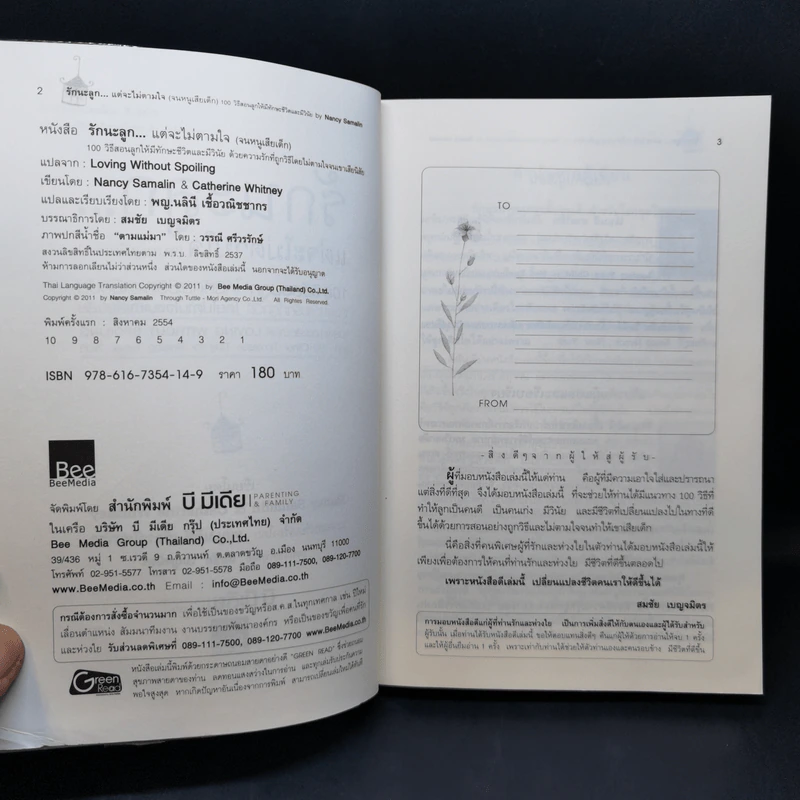 2 รักนะลูก... แต่จะไม่ตามใจ (จนหนูเสียเด็ก) 100 วิธีสอนลูกให้มีทักษะชีวิตและมีวินัย by Nancy Samalin
หนังสือ รักนะลูก... แต่จะไม่ตามใจ (จนหนูเสียเด็ก)
100 วิธีสอนลูกให้มีทักษะชีวิตและมีวินัย ด้วยความรักที่ถูกวิธีโดยไม่ตามใจจนเขาเสียนิสัย
แปลจาก : Loving Without Spoiling
เขียนโดย : Nancy Samalin & Catherine Whitney
แปลและเรียบเรียงโดย : พญ.นลินี เชื้อวณิชชากร
บรรณาธิการโดย : สมชัย เบญจมิตร
ภาพปกสีน้ำชื่อ "ตามแม่มา" โดย : วรรณี ศรีวรรักษ์
สงวนลิขสิทธิ์ในประเทศไทยตาม พ.ร.บ ลิขสิทธิ์ 2537
ห้ามการลอกเลียนไม่ว่าส่วนหนึ่ง ส่วนใดของหนังสือเล่มนี้ นอกจากจะได้รับอนุญาต
Thai Language Translation Copyright © 2011 by Bee Media Group (Thailand) Co.,Ltd.
Copyright © 2011 by Nancy Samalin Through Tuttle - Mori Agency Co.,Ltd. All Rights Reserved.
พิมพ์ครั้งแรก : สิงหาคม 2554
10 9 8 7 6 5 4 3 2 1
ISBN 978-616-7354-14-9 ราคา 180 บาท
Bee
BeeMedia
จัดพิมพ์โดย สำนักพิมพ์ บี มีเดีย PARENTING & FAMILY
ในเครือ บริษัท บี มีเดีย กรุ๊ป (ประเทศไทย) จำกัด
Bee Media Group (Thailand) Co.,Ltd.
39/436 หมู่ 1 ซ.เรวดี 9 ถ.ติวานนท์ ต.ตลาดขวัญ อ.เมือง นนทบุรี 11000
โทรศัพท์ 02-951-5577 โทรสาร 02-951-5578 มือถือ 089-111-7500, 089-120-7700
www.BeeMedia.co.th Email : info@BeeMedia.co.th
กรณีต้องการสั่งซื้อจำนวนมาก เพื่อใช้เป็นของขวัญหรือส.ค.ส.ในทุกเทศกาล เช่น ปีใหม่
เลื่อนตำแหน่ง สัมมนาทีมงาน งานบรรยายพัฒนาองค์กร หรือเป็นของขวัญเพื่อคนที่รัก
และห่วงใย รับส่วนลดพิเศษที่ 089-111-7500, 089-120-7700 www.BeeMedia.co.th
Green Read
หนังสือเล่มนี้พิมพ์ด้วยกระดาษถนอมสายตาอย่างดี "GREEN READ" ซึ่งช่วยถนอม
สุขภาพสายตาของท่าน ลดทอนแสงสว่างในการอ่าน และทุกเล่มรับประกันความ
พอใจสูงสุด หากเกิดปัญหาอันเนื่องจากการพิมพ์ สามารถเปลี่ยนเล่มใหม่ได้ทันที
3
TO
FROM
-สิ่งดีๆจากผู้ให้สู่ผู้รับ-
ผู้ที่มอบหนังสือเล่มนี้ให้แด่ท่าน คือผู้ที่มีความเอาใจใส่และปรารถนา
แต่สิ่งที่ดีที่สุด จึงได้มอบหนังสือเล่มนี้ ที่จะช่วยให้ท่านได้มีแนวทาง 100 วิธีที่
ทำให้ลูกเป็นคนดี เป็นคนเก่ง มีวินัย และมีชีวิตที่เปลี่ยนแปลงไปในทางที่ดี
ขึ้นได้ด้วยการสอนอย่างถูกวิธีและไม่ตามใจจนทำให้เขาเสียเด็ก
นี่คือสิ่งที่คนพิเศษผู้ที่รักและห่วงใยในตัวท่านได้มอบหนังสือเล่มนี้ให้
เพียงเพื่อต้องการให้คนที่ท่านรักและห่วงใย มีชีวิตที่ดีขึ้นตลอดไป
เพราะหนังสือดีเล่มนี้ เปลี่ยนแปลงชีวิตคนเราให้ดีขึ้นได้
สมชัย เบญจมิตร
การมอบหนังสือดีแก่ผู้ที่ท่านรักและห่วงใย เป็นการเพิ่มสิ่งดีให้กับตนเองและผู้ได้รับสำหรับ
ผู้รับนั้น เมื่อท่านได้รับหนังสือดีเล่มนี้ ขอให้ตอบแทนสิ่งดีๆ คืนแก่ผู้ให้ด้วยการอ่านให้จบ 1 ครั้ง
และให้ผู้อื่นยืมอ่าน 1 ครั้ง เพราะเท่ากับท่านได้ช่วยให้ตัวท่านเองและคนรอบข้าง มีชีวิตที่ดีขึ้น